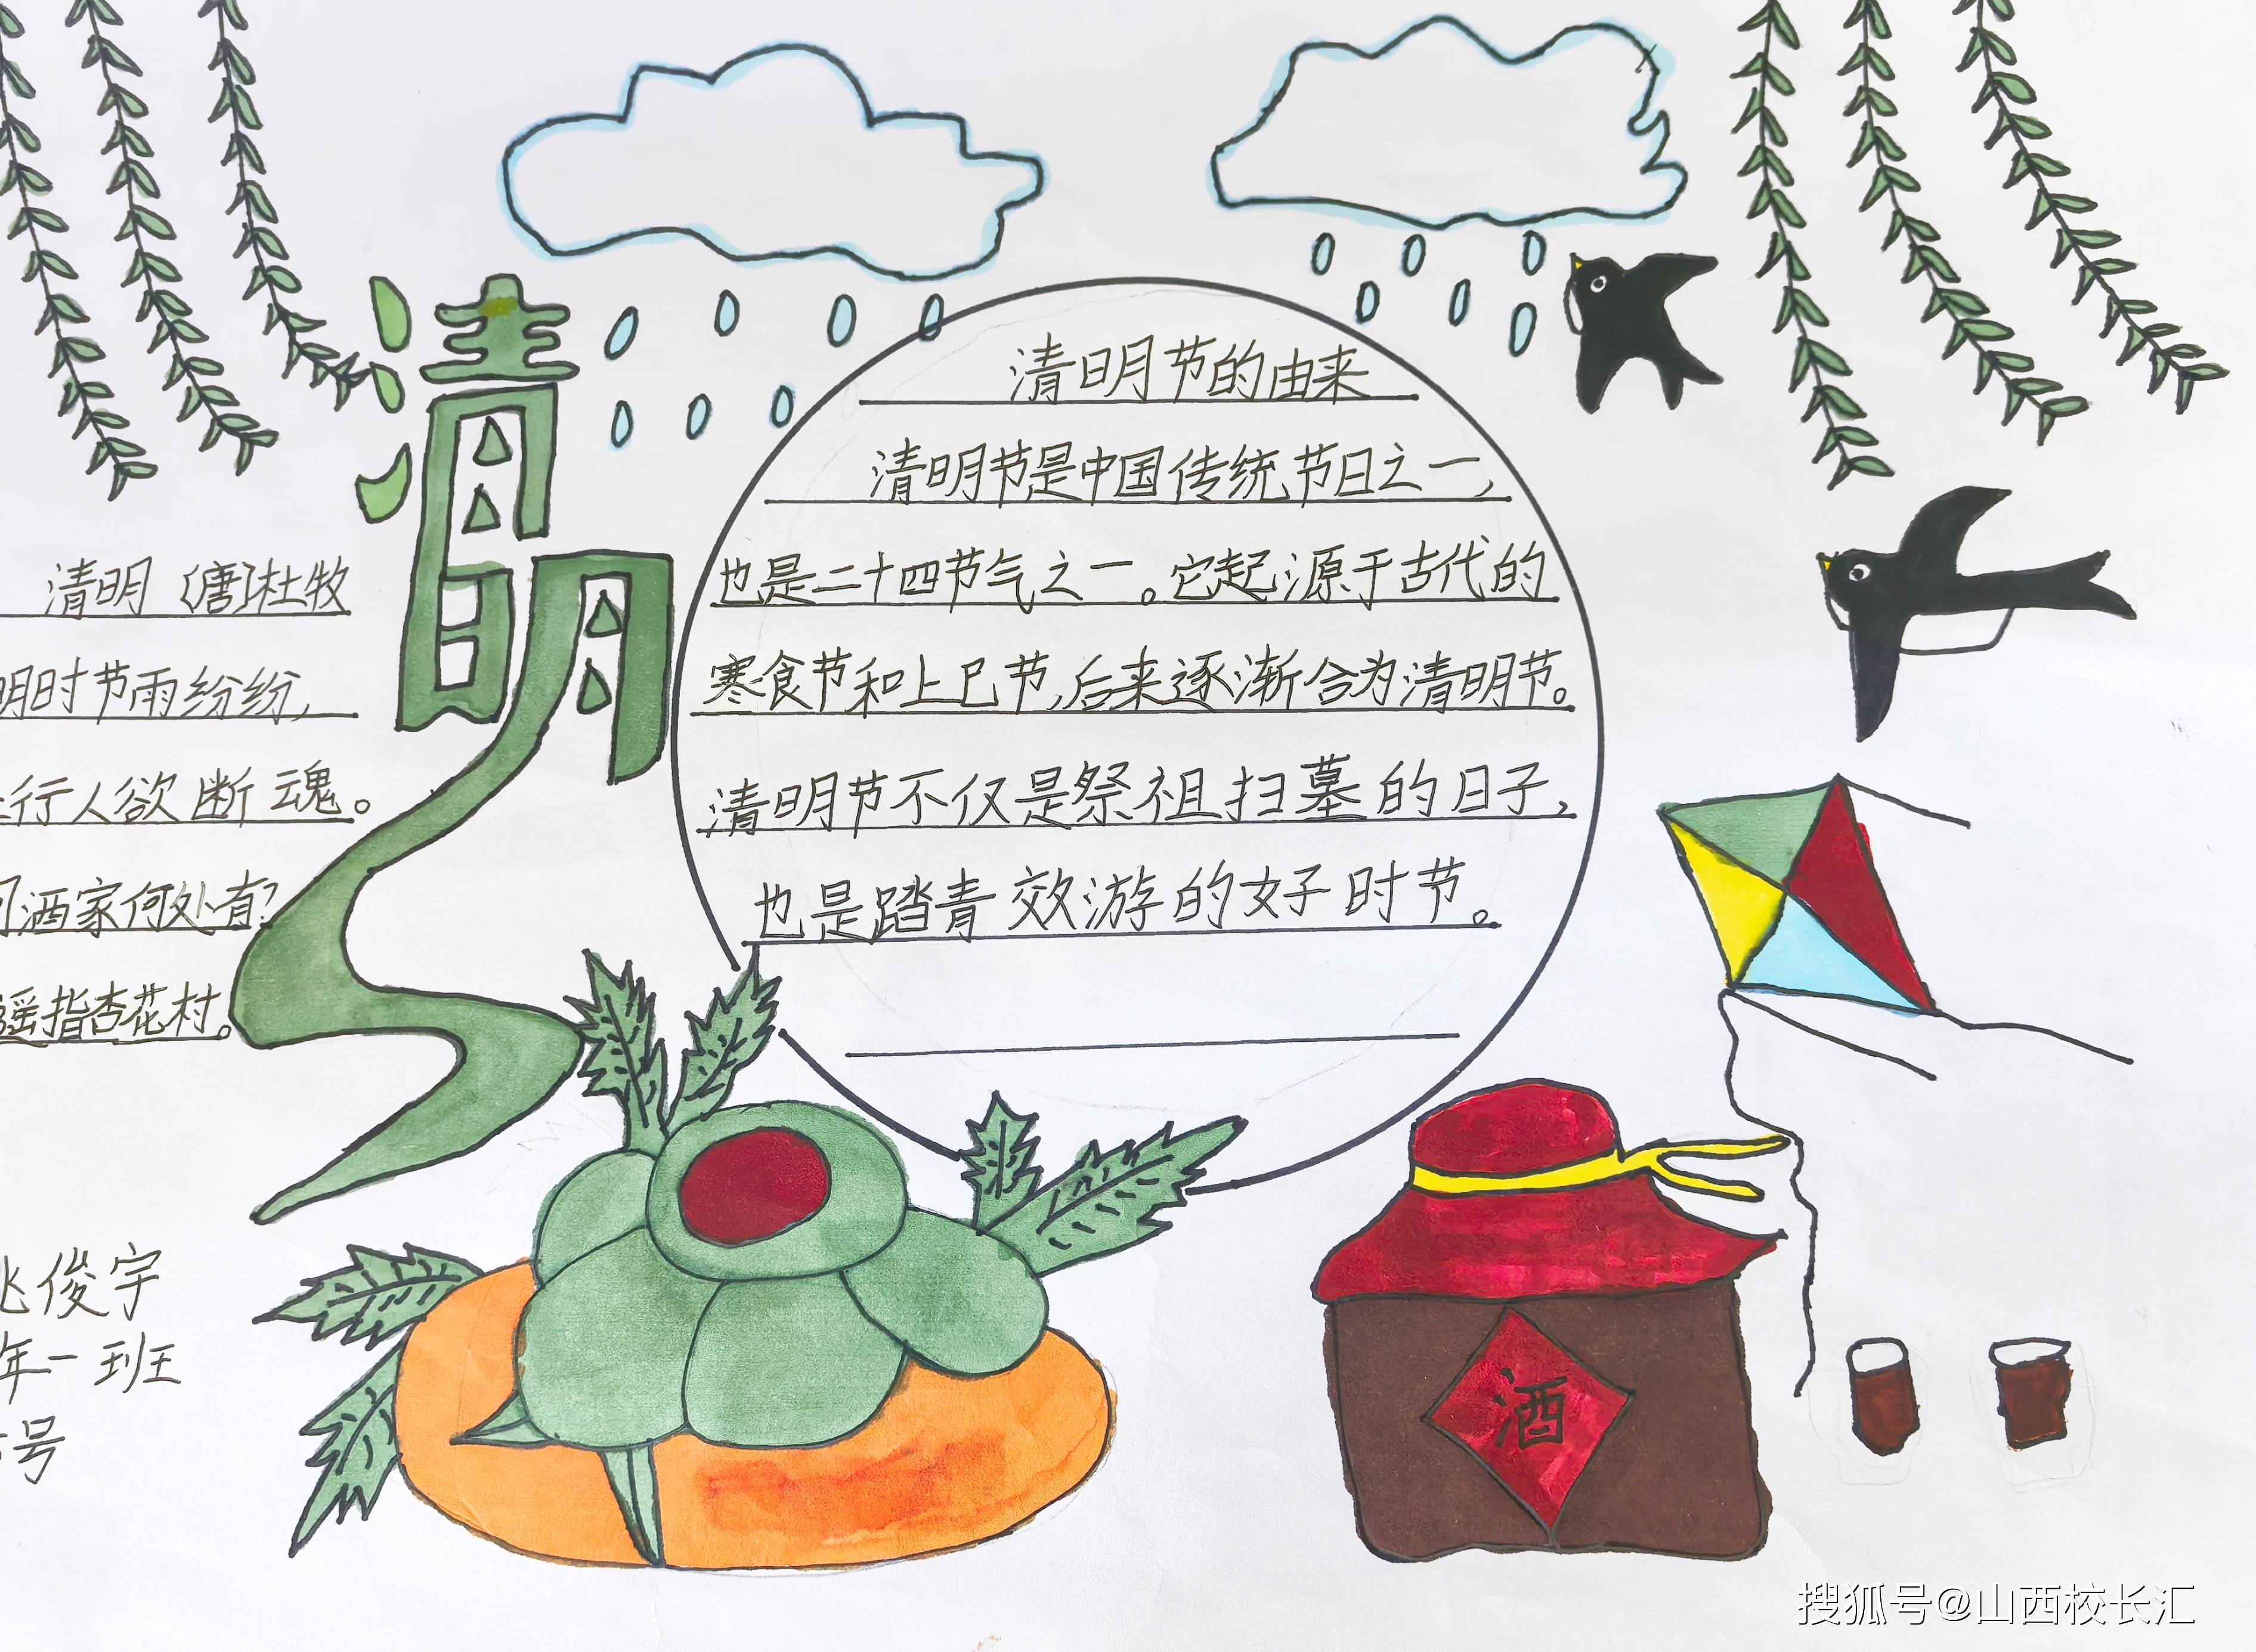 清明
清明〔唐〕杜牧
明时节雨纷纷,
行人欲断魂。
酒家何处有?
遥指杏花村。
俊宇
年一班
号
清明节的由来
清明节是中国传统节日之一,
也是二十四节气之一。它起源于古代的
寒食节和上巳节,后来逐渐合为清明节。
清明节不仅是祭祖扫墓的日子,
也是踏青效游的好时节。
酒
搜狐号@山西校长汇